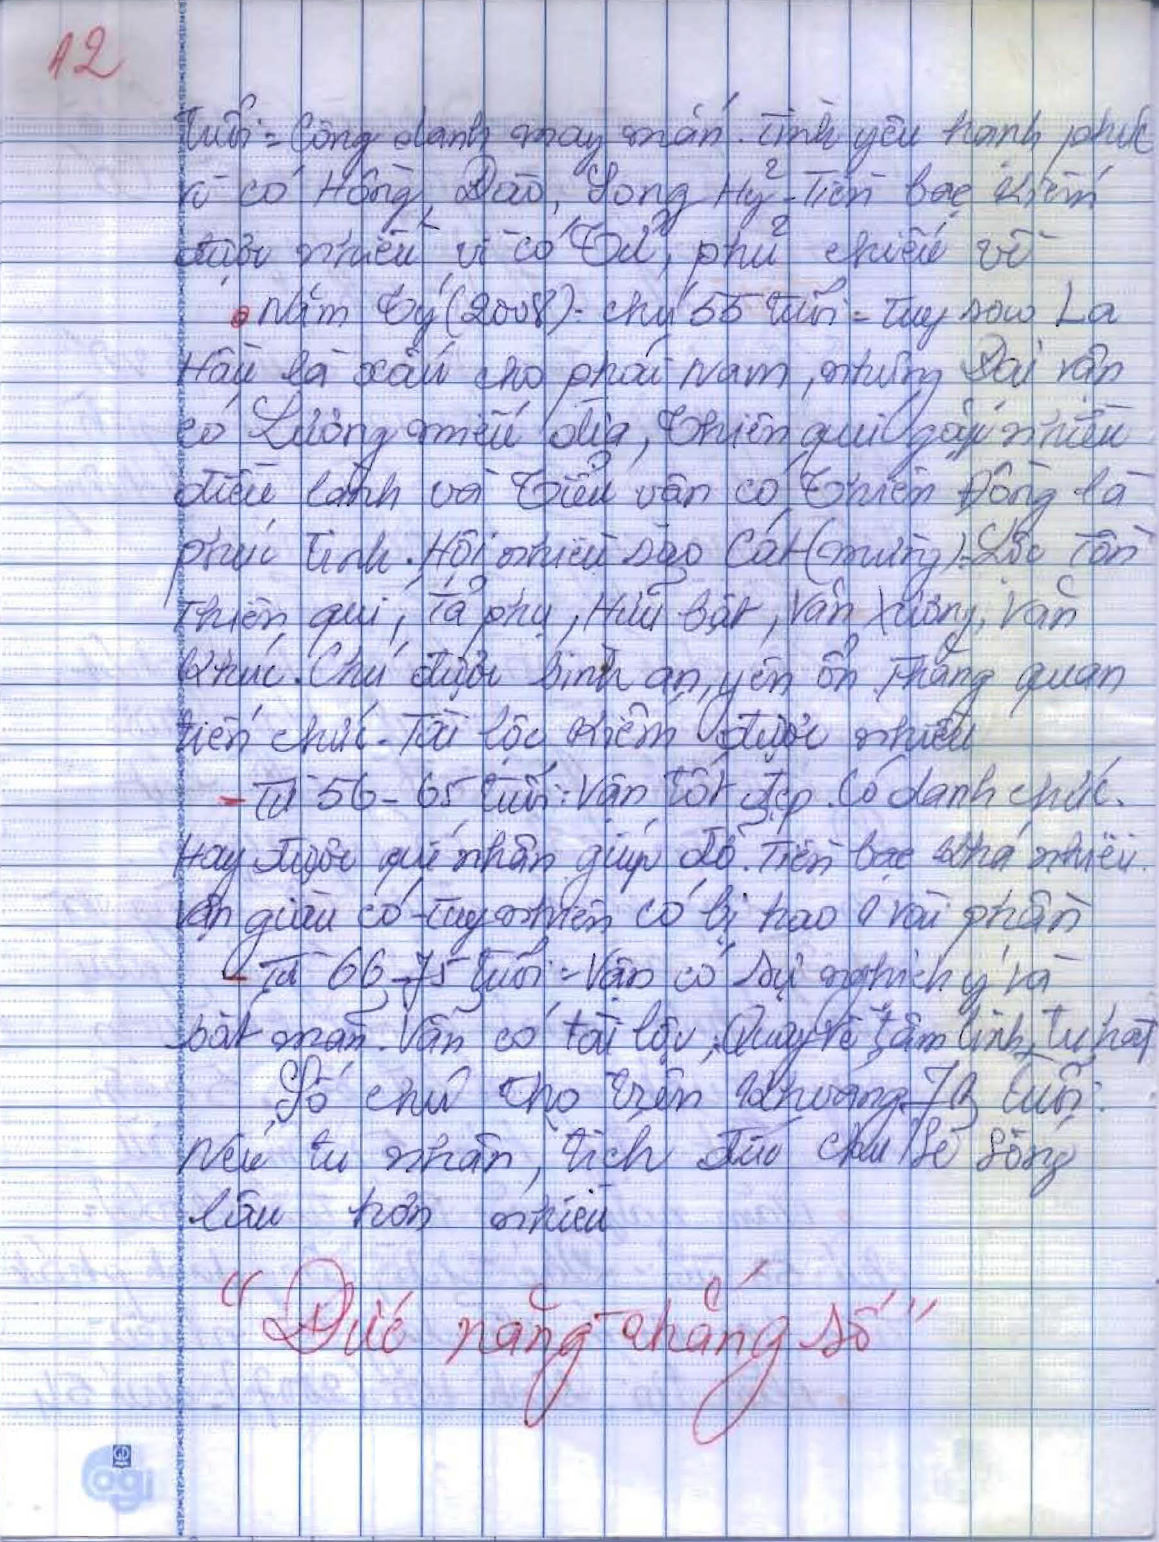 12
tuổi = Công danh may mắn. Tình yêu hạnh phúc
vì có Hồng, Đào, Song Hỷ. Tiền bạc kiếm
được nhiều vì có Tử, phủ chiếu về
• Năm Tý (2008) - chú 55 tuổi = Tuy sao La
Hầu là xấu cho phái nam, nhưng Đại vận
có Lương miếu địa, Thiên quí gặp nhiều
điều lành và Tiểu vận có Thiên Đồng là
phúc tinh. Hội nhiều sao Cát (mừng): Lộc Tồn
Thiên quí, Tả phụ, Hữu bật, Văn Xương, Văn
khúc. Chú được bình an, yên ổn. Thăng quan
tiến chức. Tài lộc kiếm được nhiều
- Từ 56 - 65 tuổi: Vận tốt đẹp. Có danh chức.
Hay được quí nhân giúp đỡ. Tiền bạc khá nhiều.
Vận giàu có - tuy nhiên có bị hao 1 vài phần
- Từ 66 - 75 tuổi = Vận có sự nghịch ý và
bất mãn. Vẫn có tài lộc, Quay về tâm linh, tu
Số chú thọ trên khoảng tuổi.
Nếu tu nhân, tích đức chú sẽ sống
lâu hơn nhiều
"Đức năng thắng số"
ogi